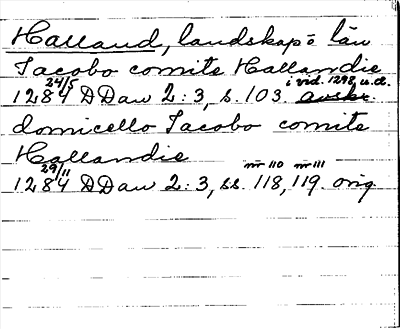 Halland, landskap o län
Jacobo comite Hallandie
24/5 i vid. 1298, u.d.
1284 DDan 2:3, s. 103. avskr
domicello Jacobo comite
Hallandie
29/11 nr 110 nr 111
1284 DDan 2:3, ss. 118, 119. orig